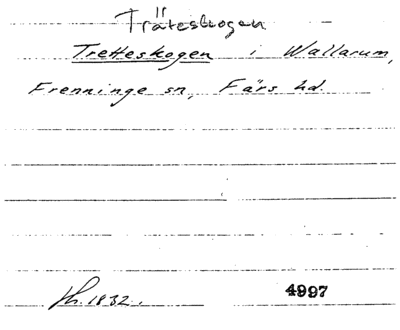 Träteskogen
Tretteskogen i Wallarum,
Frenninge sn, Färs hd.
1832. 4997